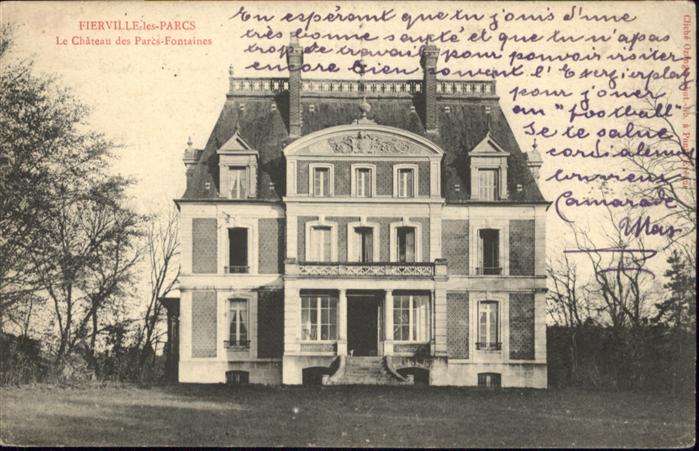 FIERVILLE-les-PARCS
Le Château des Parcs-Fontaines
En espérant que tu jouis d'une
très bonne santé et que tu n'a pas
trop de travail pour pouvoir visiter
encore bien souvent l'
pour jouer
au "football"
Je te salue
cordialement
Camarade
Cliché